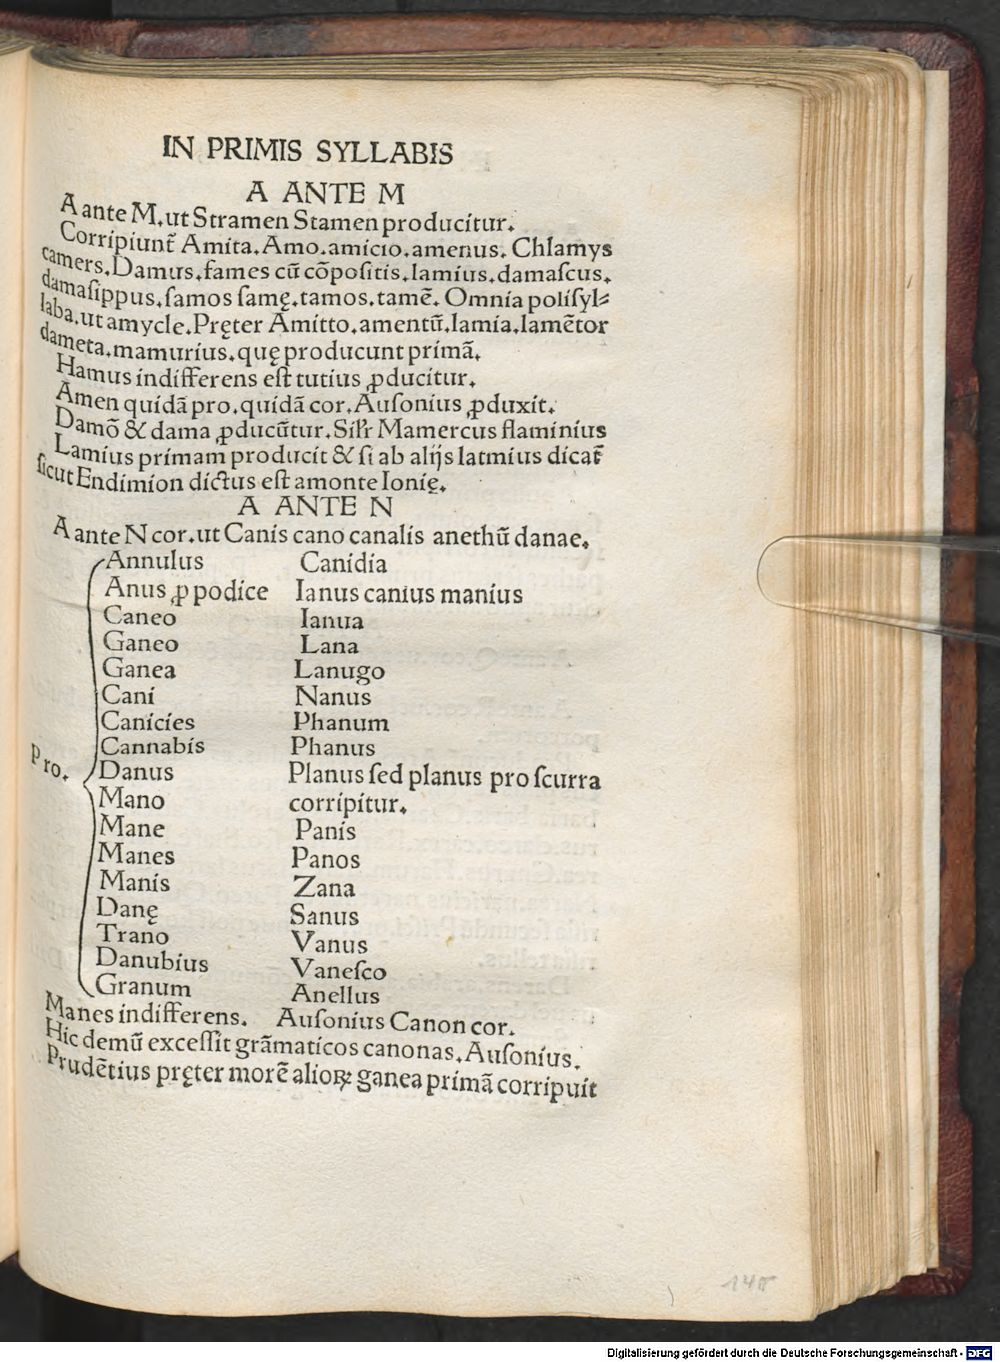 IN PRIMIS SYLLABIS
A ANTE M
A ante M. ut Stramen Stamen producitur.
Corripiunt̃ Amita. Amo. amicio. amenus. Chlamys
camers. Damus. fames cũ cõpositis. lamius. damascus.
damasippus. samos samę. tamos. tamẽ. Omnia polisyl⸗
laba. ut amycle. Pręter Amitto. amentũ. lamia. lamẽtor
dameta. mamurius. quę producunt primã.
Hamus indifferens est tutius ꝓducitur.
Amen quidã pro. quidã cor. Ausonius ꝓduxit.
Damõ & dama ꝓducũtur. Sil̃r Mamercus flaminius
Lamius primam producit & si ab alijs latmius dicat̃
sicut Endimion dictus est a monte Ionię.
A ANTE N
A ante N cor. ut Canis cano canalis anethũ danae.
Annulus Canidia
Anus ꝓ podice Ianus canius manius
Caneo Ianua
Ganeo Lana
Ganea Lanugo
Cani Nanus
Canicies Phanum
Cannabis Phanus
Pro. Danus Planus sed planus pro scurra
Mano corripitur.
Mane Panis
Manes Panos
Manis Zana
Danę Sanus
Trano Vanus
Danubius Vanesco
Granum Anellus
Manes indifferens. Ausonius Canon cor.
Hic demũ excessit grãmaticos canonas. Ausonius.
Prudẽtius pręter morẽ alioꝝ ganea primã corripuit
140
Digitalisierung gefördert durch die Deutsche Forschungsgemeinschaft - DFG